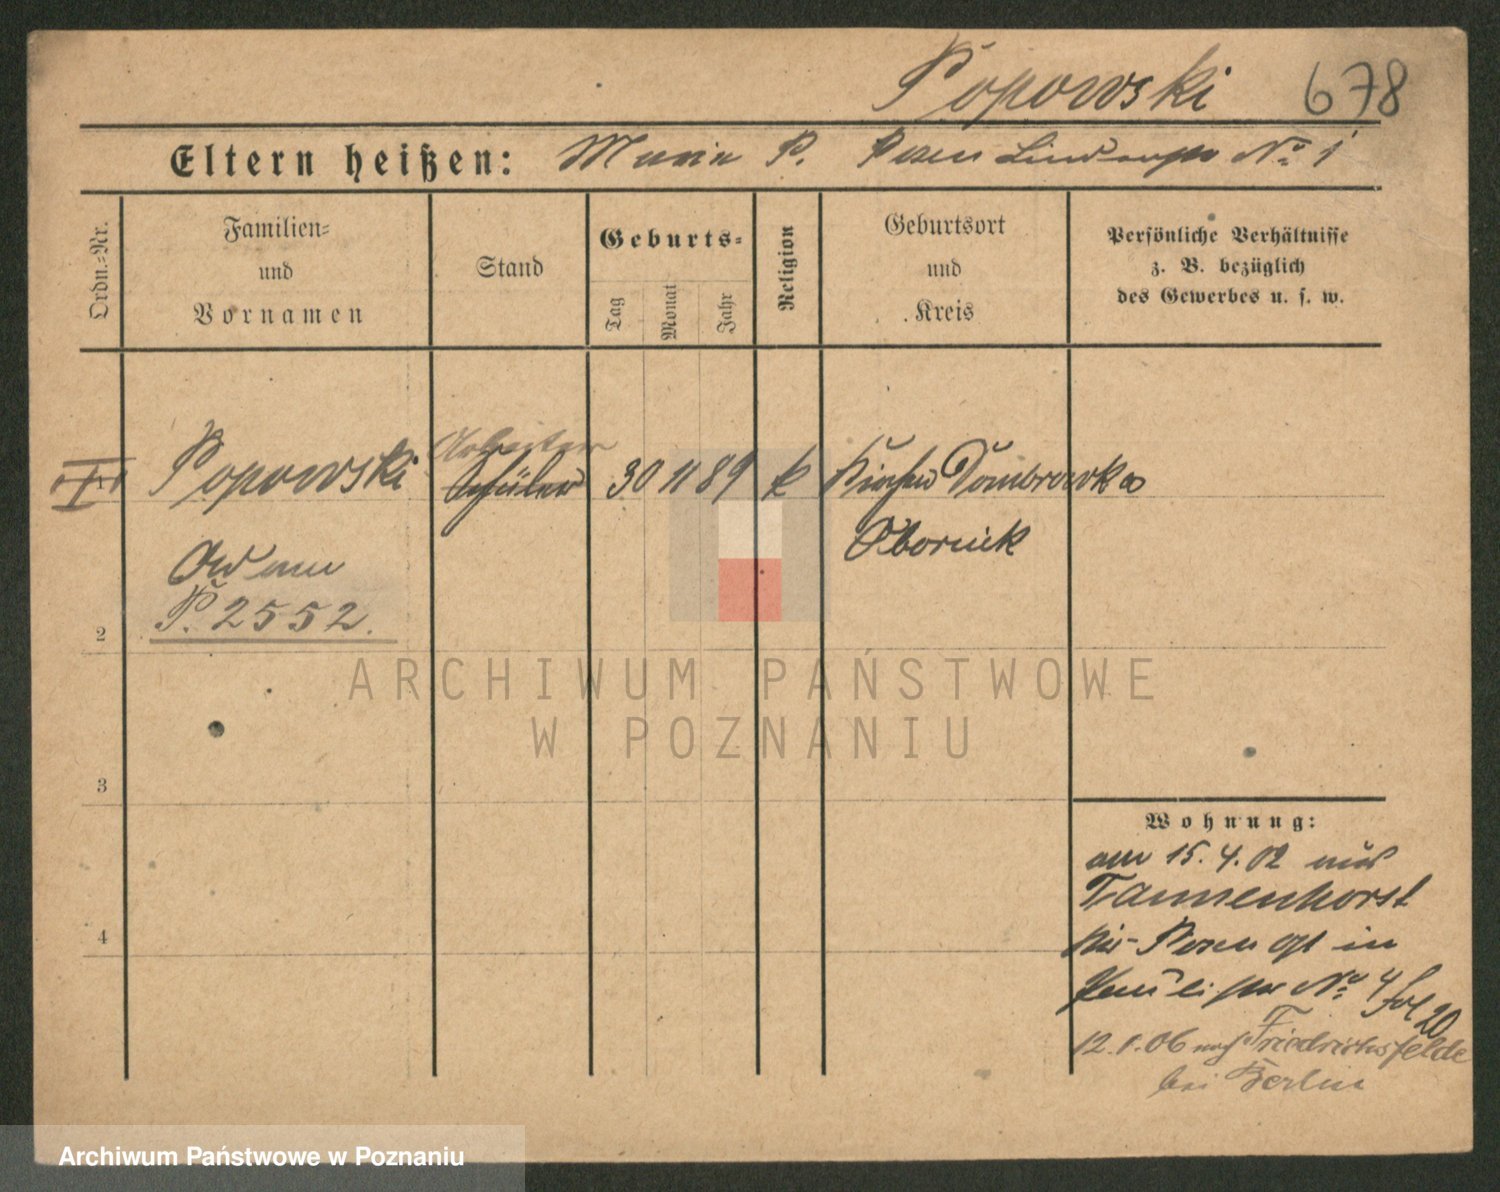 Popowski 678
Eltern heißen: Maria P. Posen Lindenstr No 1
Ordn.=Nr.
Familien=
und
Vornamen
Stand
Geburts=
Tag
Monat
Jahr
Religion
Geburtsort
und
Kreis
Persönliche Verhältnisse
z. B. bezüglich
des Gewerbes u. s. w.
Arbeiter
I Popowski Schüler 30 11 89 k Kirchen Dombrowka
Obornick
Adam
P. 2552.
2
3
4
Wohnung:
am 15.4.02 aus
Tannenhorst
Kr. Posen Ost in
No 4 fol 20
12. 1. 06 nach Friedrichsfelde
bei Berlin
ARCHIWUM PAŃSTWOWE
W POZNANIU
Archiwum Państwowe w Poznaniu